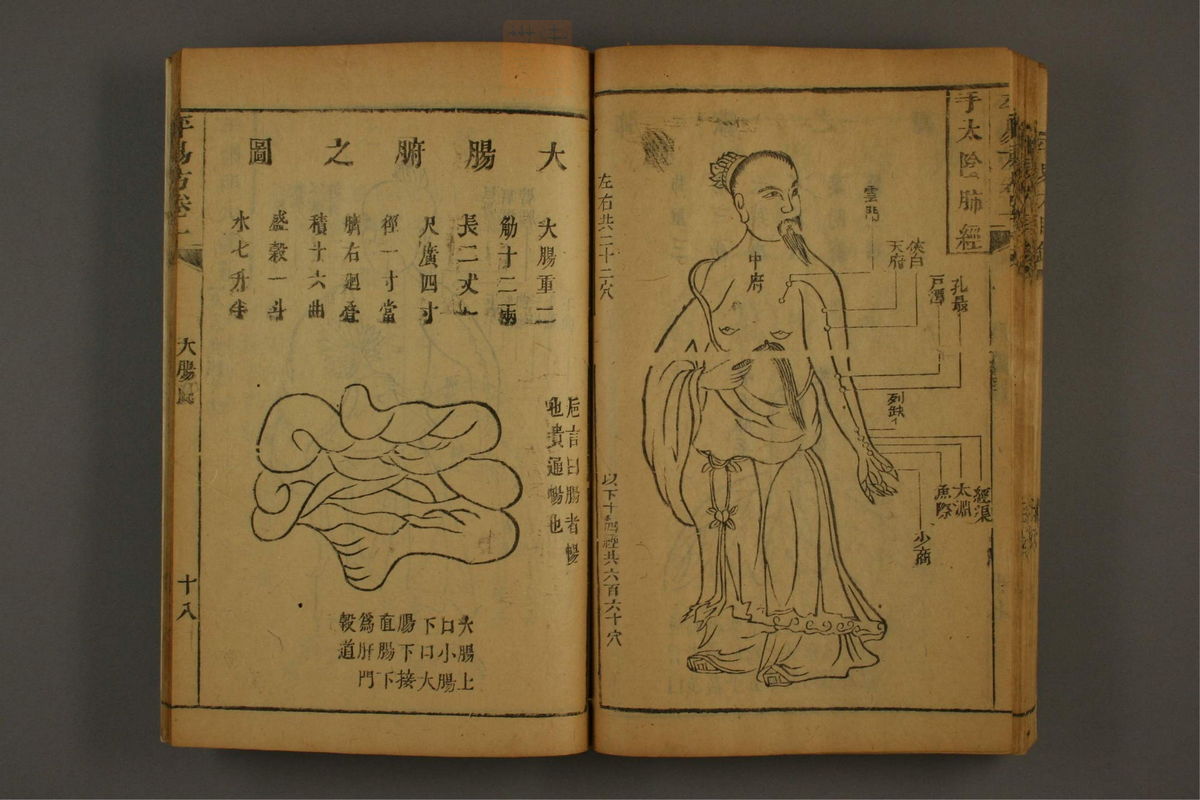 手太陰肺經
雲門
中府
俠白
天府
孔最
尺澤
列缺
經渠
太淵
魚際
少商
左右共二十二穴
以下十四經共六百六十穴
大腸腑之圖
大腸重二
觔十二兩
長二丈一
尺廣四寸
徑一寸當
臍右廻叠
積十六曲
盛穀一斗
水七升半
巵言曰腸者暢
也貴通暢也
大腸上
口小腸
下口大
腸下接
直腸下
為肛門
穀道
平易方卷一
大腸
十八